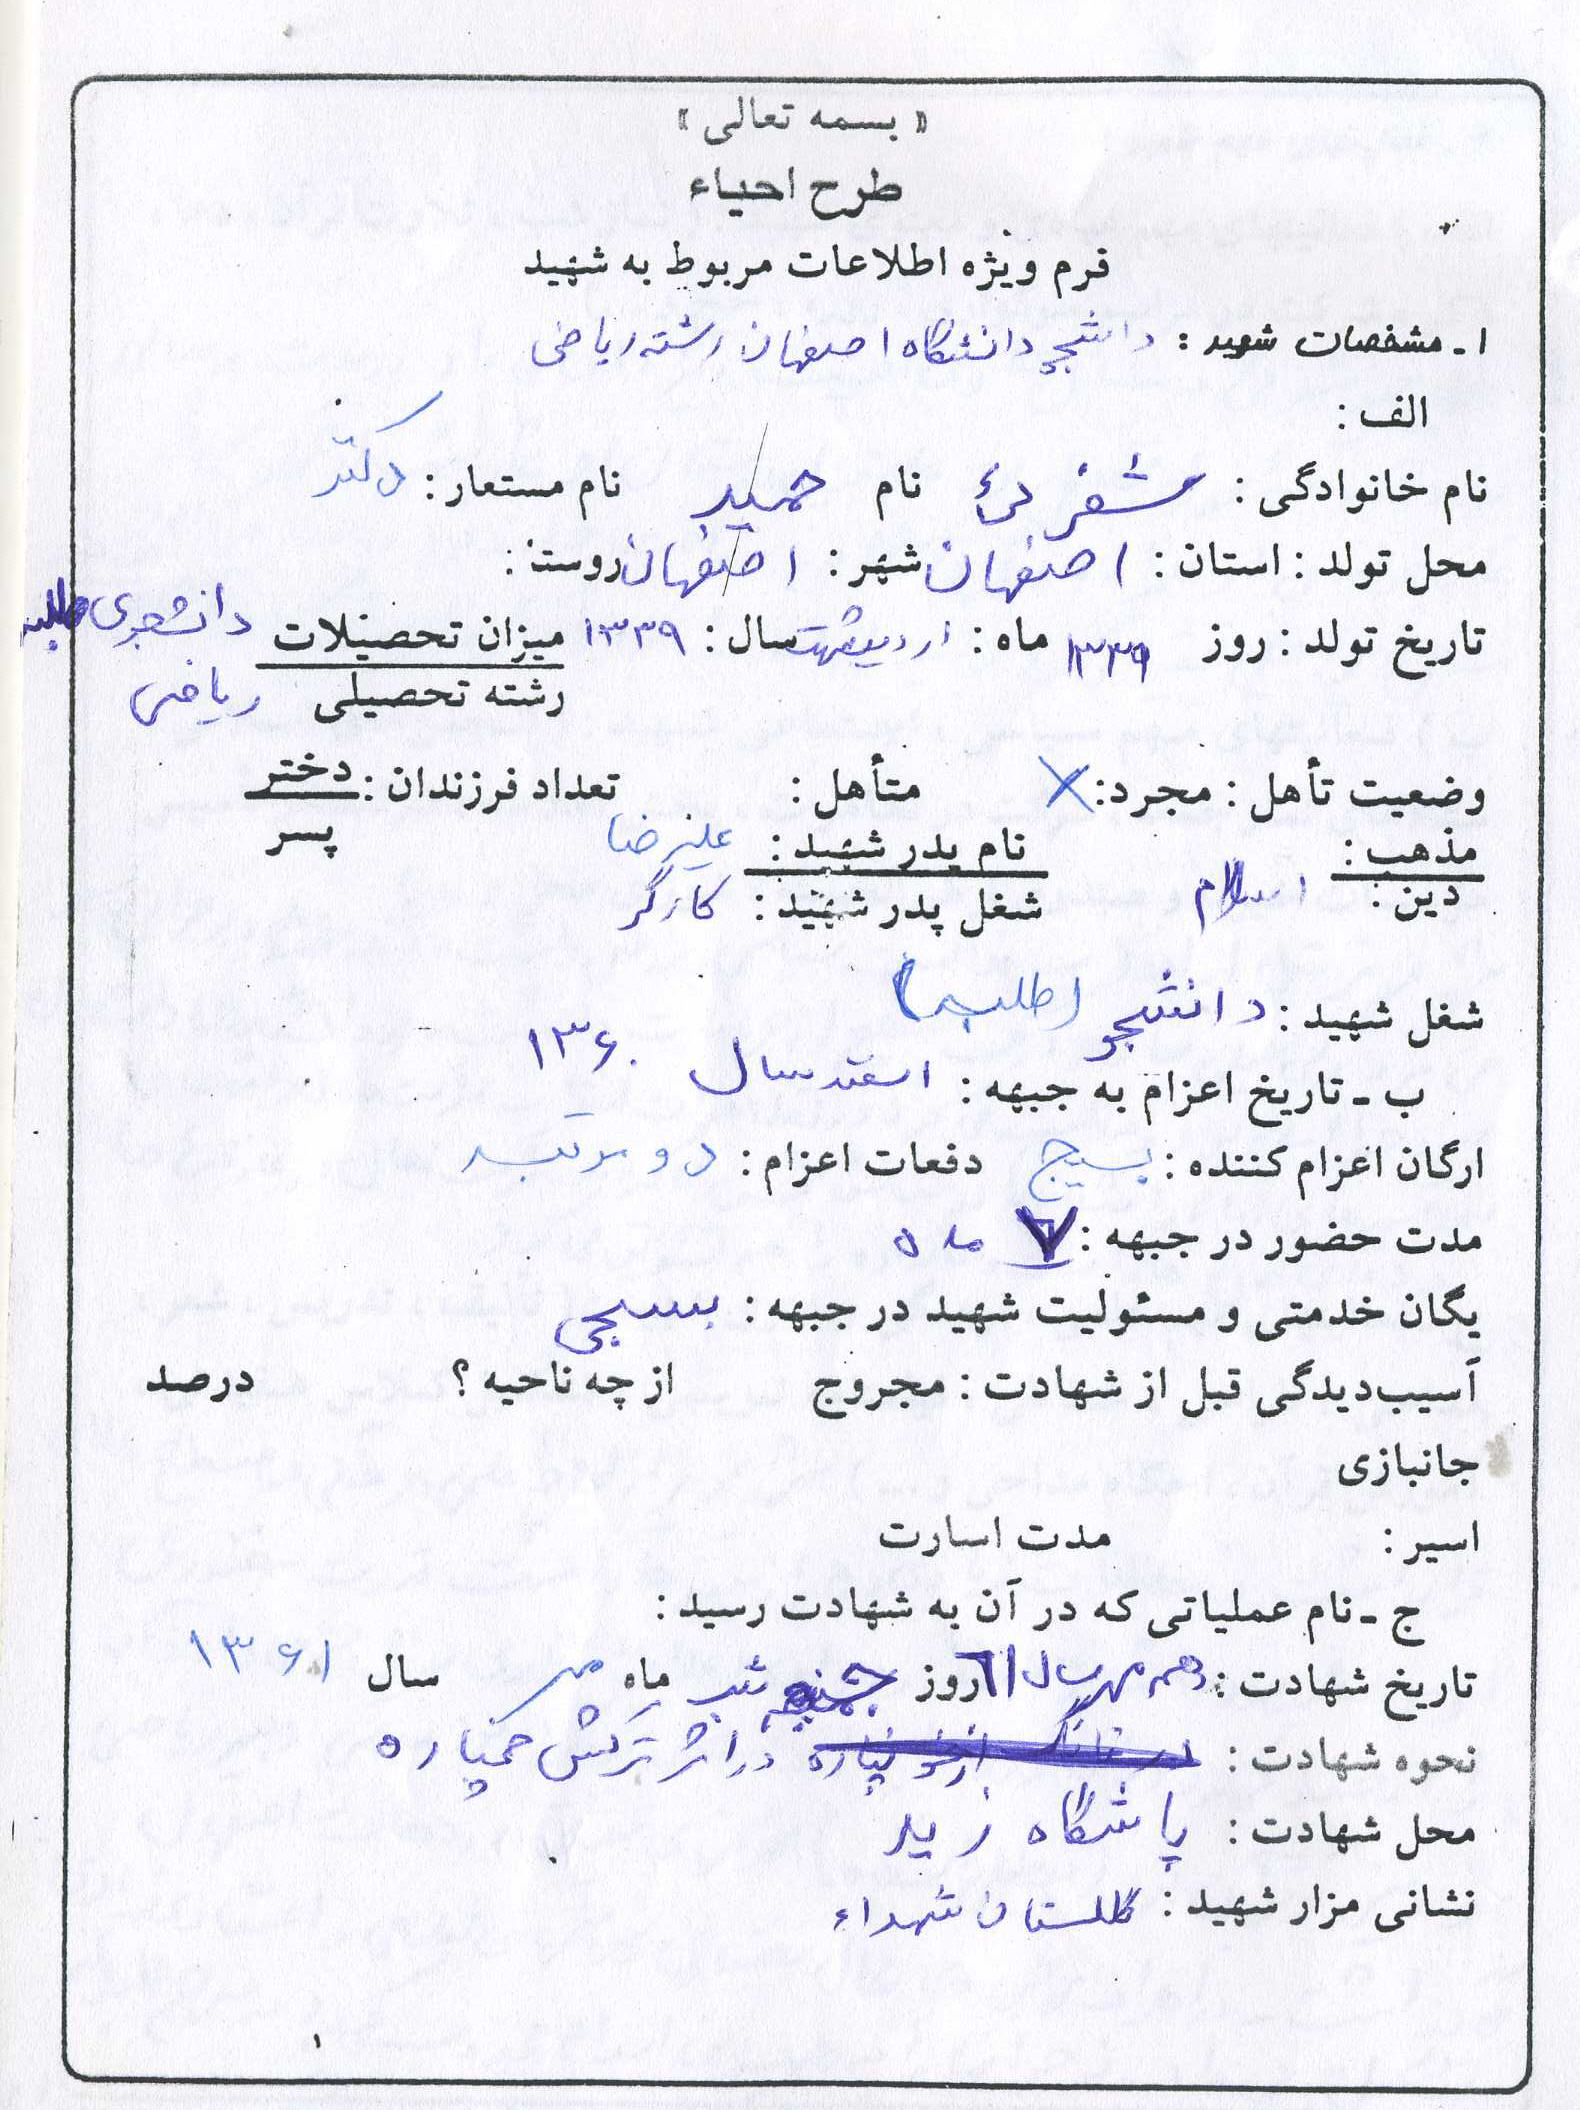 « بسمه تعالی »
طرح احیاء
فرم ویژه اطلاعات مربوط به شهید
۱ـ مشخصات شهید : دانشجو دانشگاه اصفهان رشته ریاضی
الف :
نام خانوادگی : نام حمید نام مستعار : دکتر
محل تولد : استان : اصفهان شهر : اصفهان روستا :
تاریخ تولد : روز ۱۳۳۹ ماه : اردیبهشت سال : ۱۳۳۹ میزان تحصیلات دانشجوی طلبه
رشته تحصیلی ریاضی
وضعیت تأهل : مجرد : X متأهل : تعداد فرزندان : دختر
پسر
مذهب : نام پدر شهید : علیرضا
دین : اسلام شغل پدر شهید : کارگر
شغل شهید : دانشجو (طلبه)
ب ـ تاریخ اعزام به جبهه : اسفند سال ۱۳۶۰
ارگان اعزام کننده : بسیج دفعات اعزام : دو مرتبه
مدت حضور در جبهه : ۷ ماه
یگان خدمتی و مسئولیت شهید در جبهه : بسیجی
آسیب‌دیدگی قبل از شهادت : مجروح از چه ناحیه ؟ درصد
جانبازی
اسیر : مدت اسارت
ج ـ نام عملیاتی که در آن به شهادت رسید :
تاریخ شهادت : مهر سال ۶۱ روز ماه مهر سال ۱۳۶۱
نحوه شهادت : در اثر ترکش خمپاره
محل شهادت : پاسگاه زید
نشانی مزار شهید : گلستان شهداء
۱